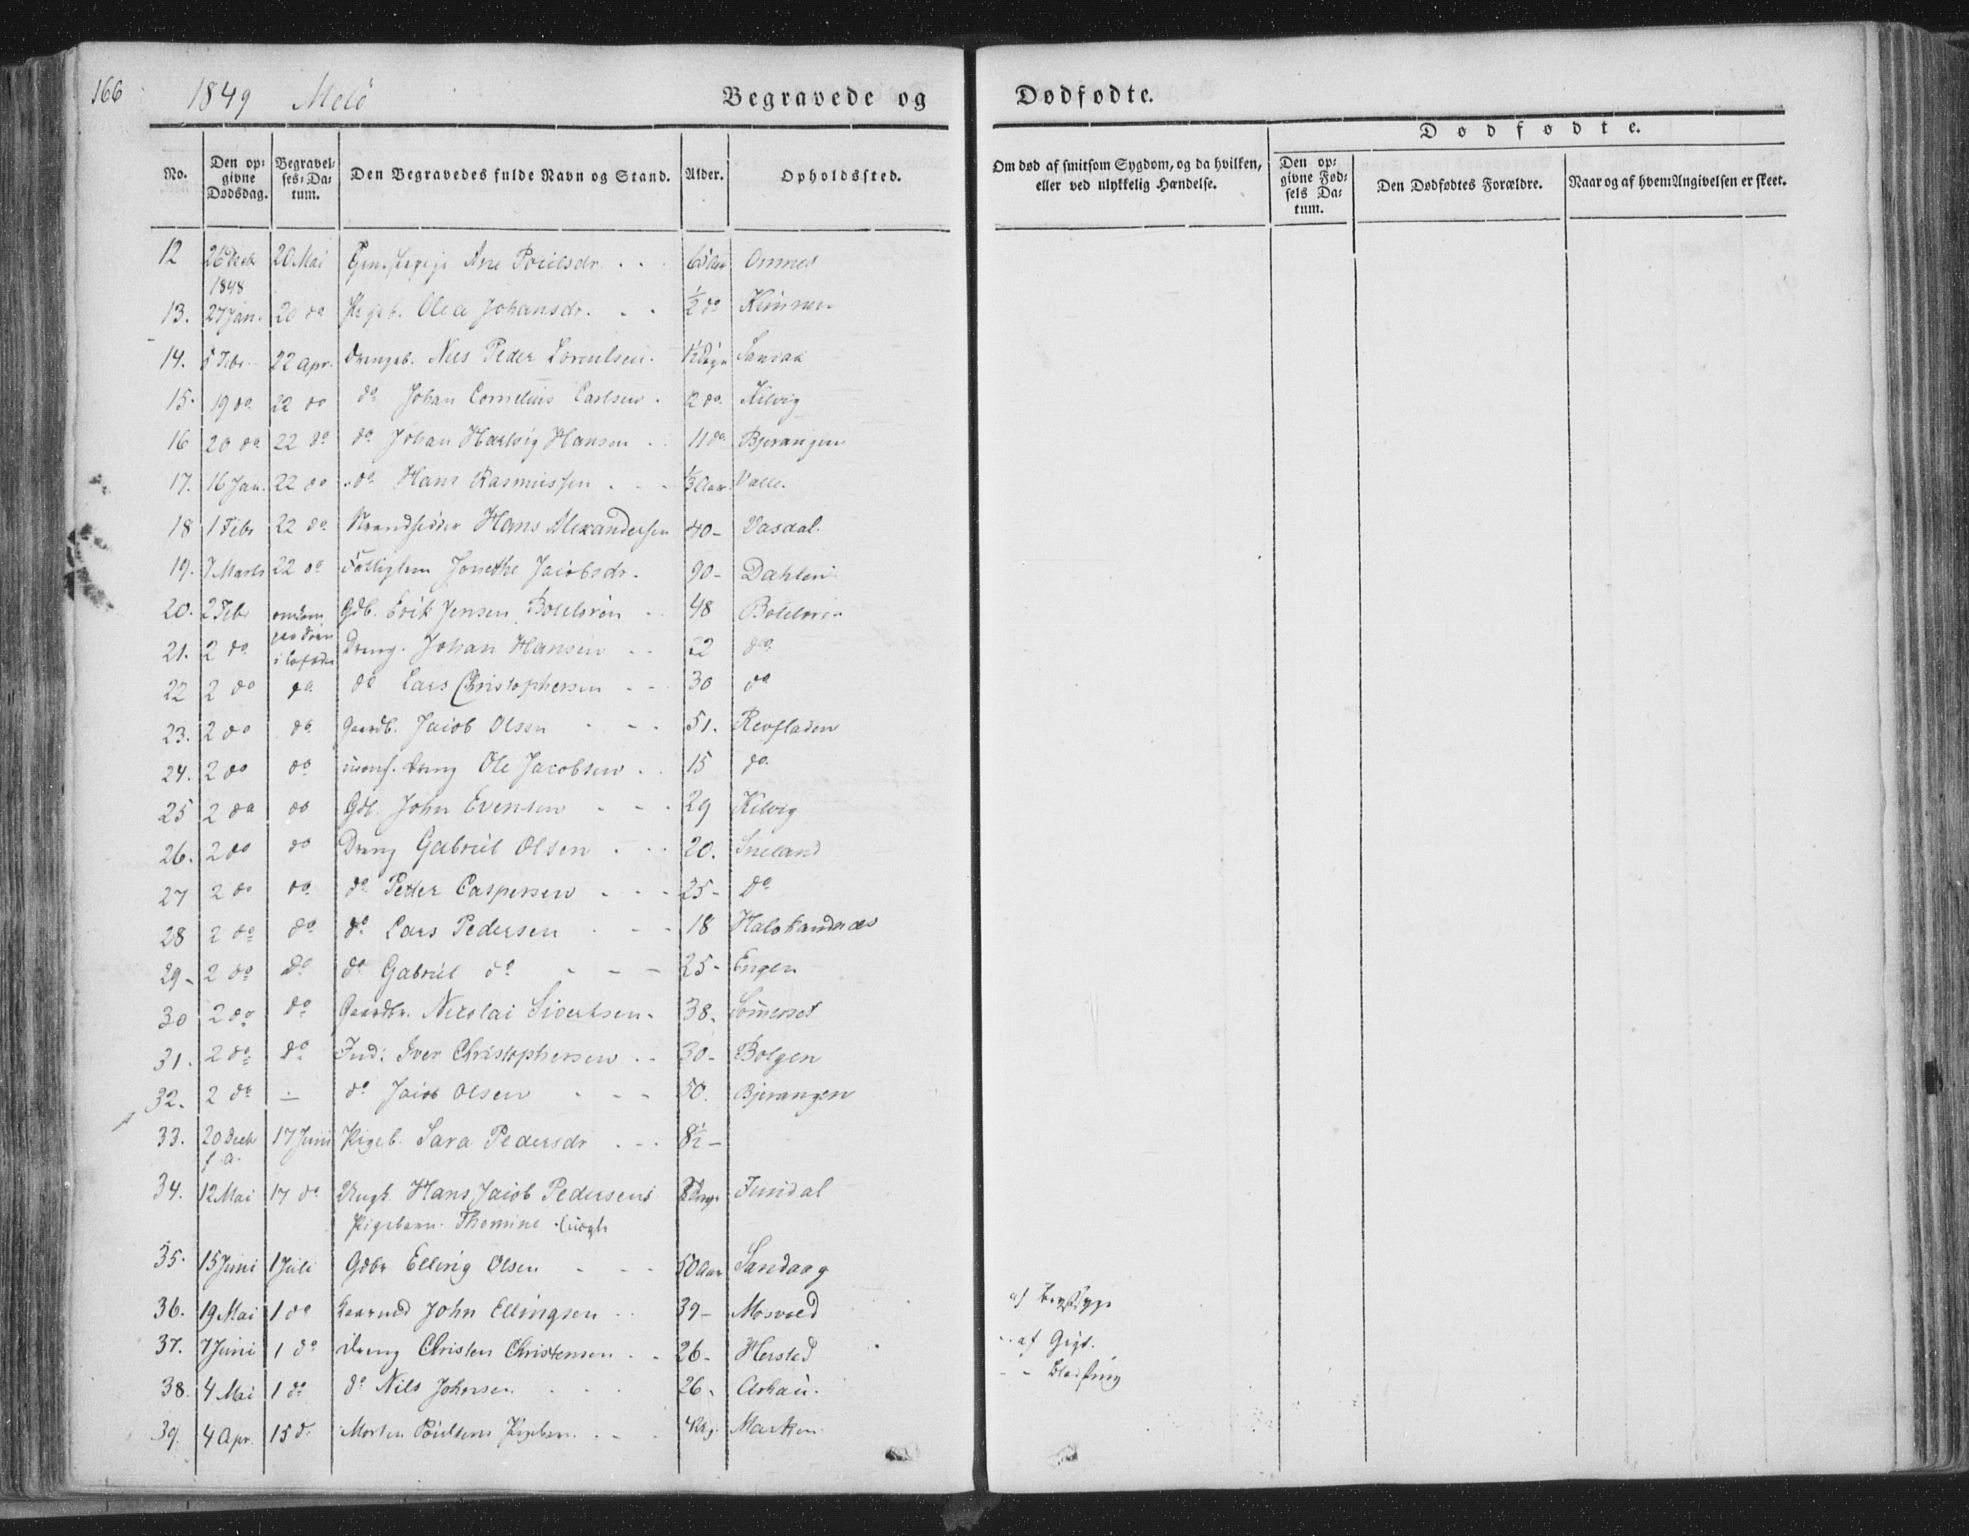 166 1849 Melö Begravede og Dødfødte.
Dødfødte.
No. Den op= givne Dødsdag. Begravel= ses=Da= tum. Den Begravedes fulde Navn og Stand. Alder. Opholdssted. Om død af smitsom Sygdom, og da hvilken, eller ved ulykkelig Hændelse. Den op= givne Fød= sels Da= tum. Den Dødfødtes Forældre. Naar og af hvem Angivelsen er skeet.
12 26 Decb 20 Mai Ane Poulsdr 65 Aar Omnes
1848
13. 27 Jan. 20 do Pigeb. Olea Johansdr. 1/2 do
14. 5 Febr. 22 Apr. Drengeb. Nils Peder
15. 19 do 22 do do Johan Cornelius Carlsen. 12 do Kilvig
16 20 do 22 do do Johan Hartvig Hansen 11 do Bjerangen
17. 16 Jan. 22 do do Hans Rasmussen 1/3 Aar Valle.
18 1 Febr 22 do Strandsidder Hans Alexandersen 40 - Vasdal.
19. 7 Marts 22 do Fattiglem Jacobsdr. 90 - Dahlen
20. 2 Febr omkom Gdb. Erik Jensen 48
21. 2 do paa Søen i Lofoden Dreng. Johan Hansen 22 do
22 2 do do do Lars Christophersen 30 do
23. 2 do do Gaardb. Jacob Olsen 51. Revfladen
24. 2 do do uconf. Dreng Ole Jacobsen 15 do
25 2 do do Gdb. John Evensen 29 Kilvig
26. 2 do do Dreng Gabriel Olsen 20.
27 2 do do do Petter Caspersen 25 - do
28 2 do do do Lars Pedersen 18
29 - 2 do do do Gabriel do 25 - Engen
30 2 do do Gaardbr. Nicolai Sivertsen 38.
31. 2 do do Ind: Iver Christophersen 30 - Bolgen
32. 2 do - do Jacob Olsen 50. Bjerangen
33. 20 Decb 17 Juni Pigeb. Sara Pedersdr 8 1/2 -
f. a.
34. 12 Mai 17 do Hans Jacob Pedersens
Pigebarn Thomine
35. 15 Juni 1 Juli Gdbr Elling Olsen 50 Aar Sandaag
36. 19 Mai 1 do John Ellingsen 39 - Mosvold af
37. 7 Juni 1 do Dreng Christen Christensen 26 - Hersted af Gigt.
38. 4 Mai 1 do do Nils Johnsen 26.
39. 4 Apr. 15 do Morten Poulsens Pigebarn